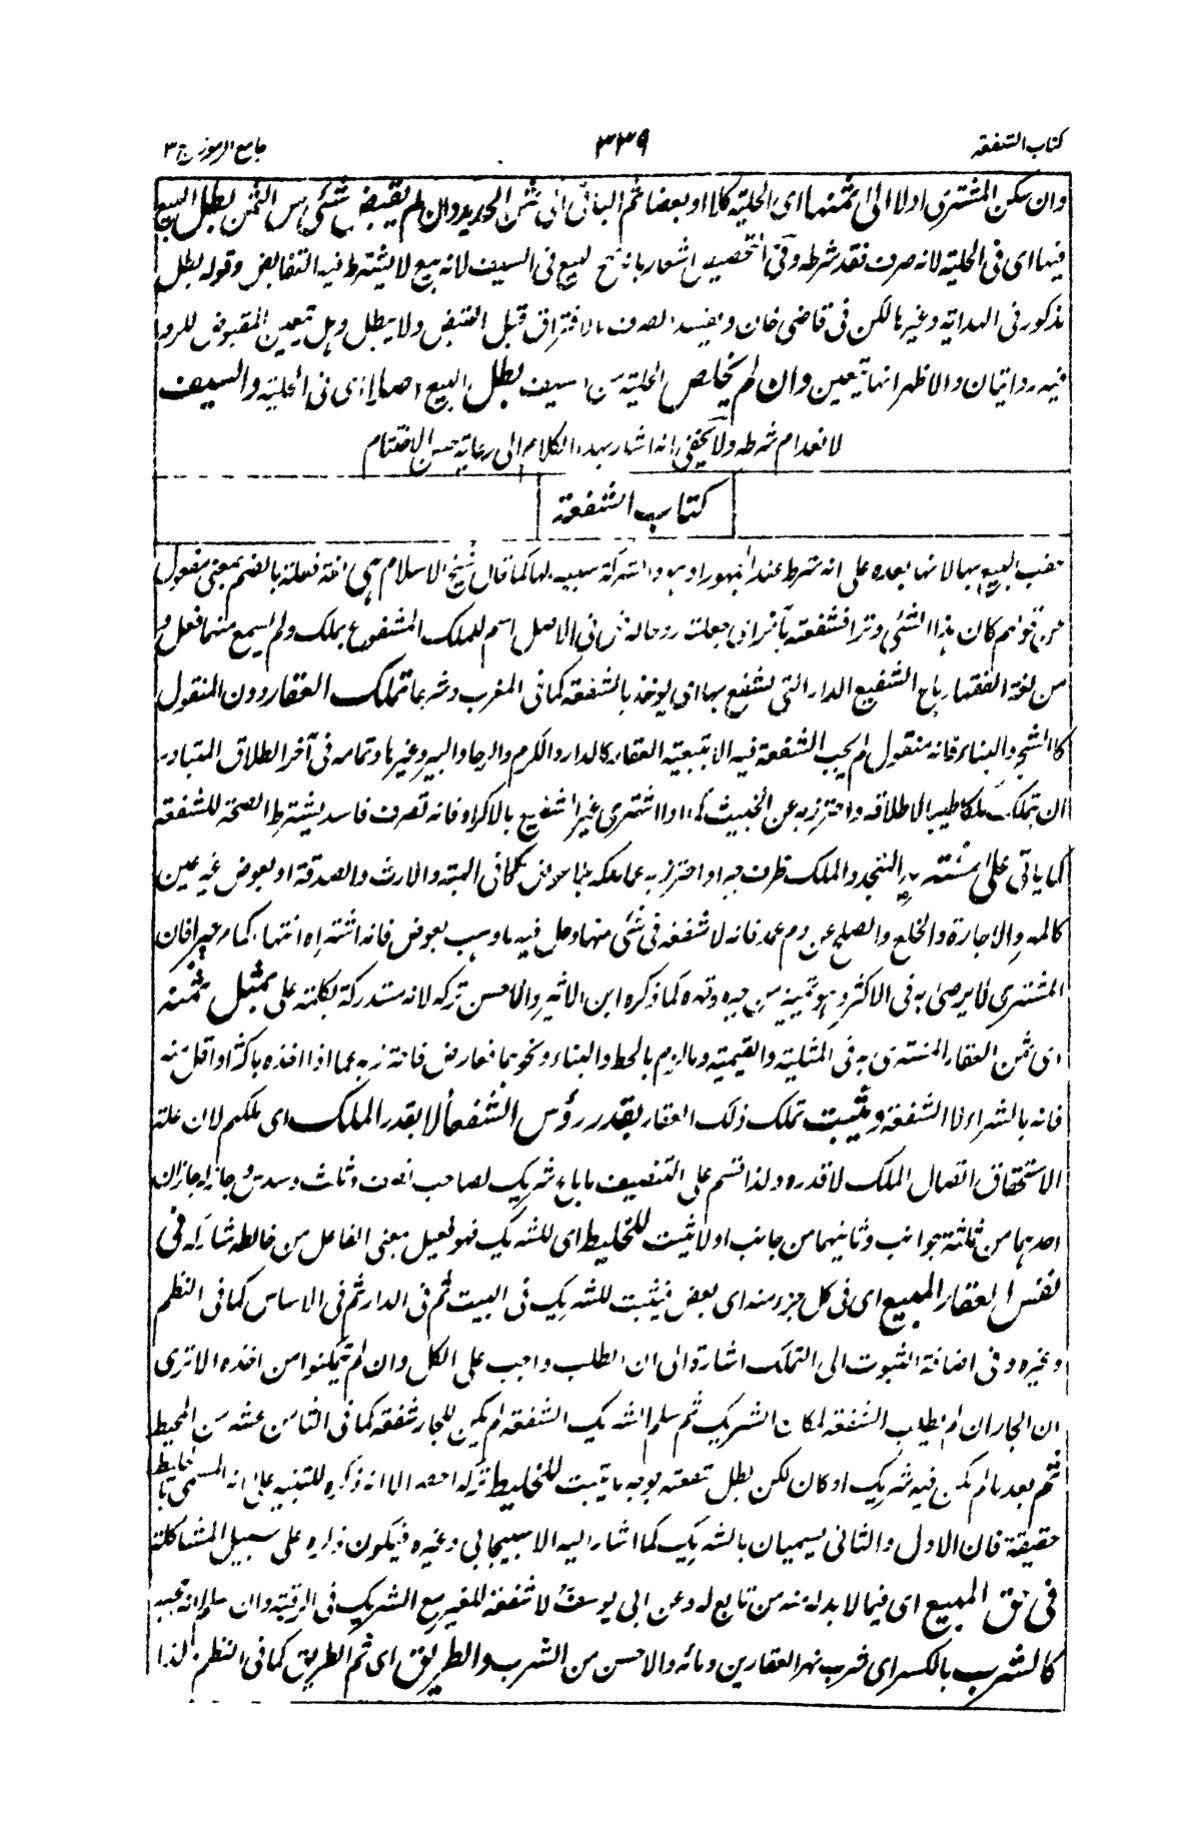 كتاب الشفعة ٣٣٩ جامع الرموز ج ٣
وان سكن المشترى اولا الى ثمنها اى الحلية كلا او بعضا ثم الباقى الى ثمن الحديد وان لم يقبض شئ من الثمن بطل البيع
فيها اى فى الحلية لانه صرف فقد شرطه وفى التخصيص اشعار بانه صح البيع فى السيف لانه بيع لا يشترط فيه التقابض وقوله بطل
مذكور فى الهداية وغيرها لكن فى قاضى خان ويفسد الصرف بالافتراق قبل القبض ولا يبطل وهل تعين المقبوض للرد
فيه روايتان والاظهر انها تتعين وان لم يخلص الحلية من السيف بطل البيع اصلا اى فى الحلية والسيف
لانعدام شرطه ولا يخفى انه اشار بهذا الكلام الى رعاية حسن الاختتام
كتاب الشفعة
عقب البيع بها لانها بعده على انه شرط عند الجمهور او سببه والشركة سبب لها كما قال شيخ الاسلام هى لغة فعلة بالضم بمعنى مفعول
من قولهم كان هذا الشئ وترا فشفعته بآخر اى جعلته زوجا له فهى فى الاصل اسم للملك المشفوع بملك ولم يسمع منها فعل و
من لغة الفقهاء باع الشفيع الدار التى يشفع بها اى يؤخذ بالشفعة كما فى المغرب وشرعا تملك العقار دون المنقول
كالشجر والبناء فانه منقول لم يجب الشفعة فيه الا بتبعية العقار كالدار والكرم والرحا والبير وغيرها وتمامه فى آخر الطلاق المتبادر
ان تملك ملكا طيبا لاطلاقه واحترز به عن الخبيث كما اذا اشترى غير الشفيع بالاكراه فانه تصرف فاسد يشترط الصحة للشفعة
كما ياتى على مشتريه المتجدد الملك ظرف جبرا واحترز به عما ملكه بلا عوض كما فى الهبة والارث والصدقة او بعوض غير عين
كالمهر والاجارة والخلع والصلح عن دم عمد فانه لا شفعة فى شئ منها ودخل فيه ما وهب بعوض فانه اشتراه انتهاء كما مر جبرا فان
المشترى لا يرضى به فى الاكثر وهو تمييز من جبره وقهره كما ذكره ابن الاثير والاحسن تركه لانه مستدركة بكلمة على بمثل ثمنه
اى ثمن العقار المشترى به فى المثلية والقيمية وما لزم بالحط والبناء ونحوهما فعارض فاحترز به عما اذا اخذه باكثر او اقل منه
فانه بالشراء لا الشفعة ويثبت تملك ذلك العقار بقدر رؤس الشفعاء لا بقدر الملك اى ملكهم لان علة
الاستحقاق اتصال الملك لا قدره ولذا قسم على التنصيف ما باع شريك لصاحب نصف وثلث وسدس وجار له جاران
احدهما من ثلثة جوانب وثانيهما من جانب اولا ثبت للخليط اى للشريك فهو فعيل بمعنى الفاعل من خالطه شاركه فى
نفس العقار المبيع اى فى كل جزء منه اى بعض فيثبت للشريك فى البيت ثم فى الدار ثم فى الاساس كما فى النظم
وغيره وفى اضافة الثبوت الى التملك اشارة الى ان الطلب واجب على الكل وان لم يتمكنوا من اخذه الا ترى
ان الجار ان لم يطلب الشفعة لمكان الشريك ثم سلم الشريك الشفعة لم يكن للجار شفعة كما فى الثامن عشر من المحيط
ثم بعد ما لم يكن فيه شريك او كان لكن بطل شفعته بوجه ما يثبت للخليط تركه احصر الا انه ذكره للتنبيه على انه المسمى بالخليط
حقيقة فان الاول والثانى يسميان بالشريك كما اشار اليه الاسبيجابى وغيره فيكون ذكره على سبيل المشاكلة
فى حق المبيع اى فيما لا بد له منه من تابع له وعن ابى يوسف لا شفعة للغير مع الشريك فى الرقبة وان سلم لانه يحجبه
كالشرب بالكسر اى شرب نهر العقارين ومائه والاحسن من الشرب والطريق اى ثم الطريق كما فى النظم لذا